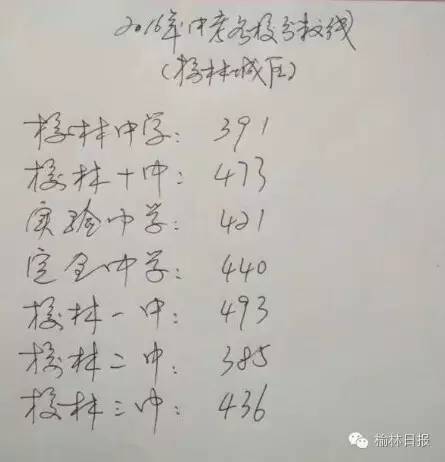 2016年中考各校分数线
(榆林城区)
榆林中学: 391
榆林十中: 473
实验中学: 421
定全中学: 440
榆林一中: 493
榆林二中: 385
榆林三中: 436
榆林日报